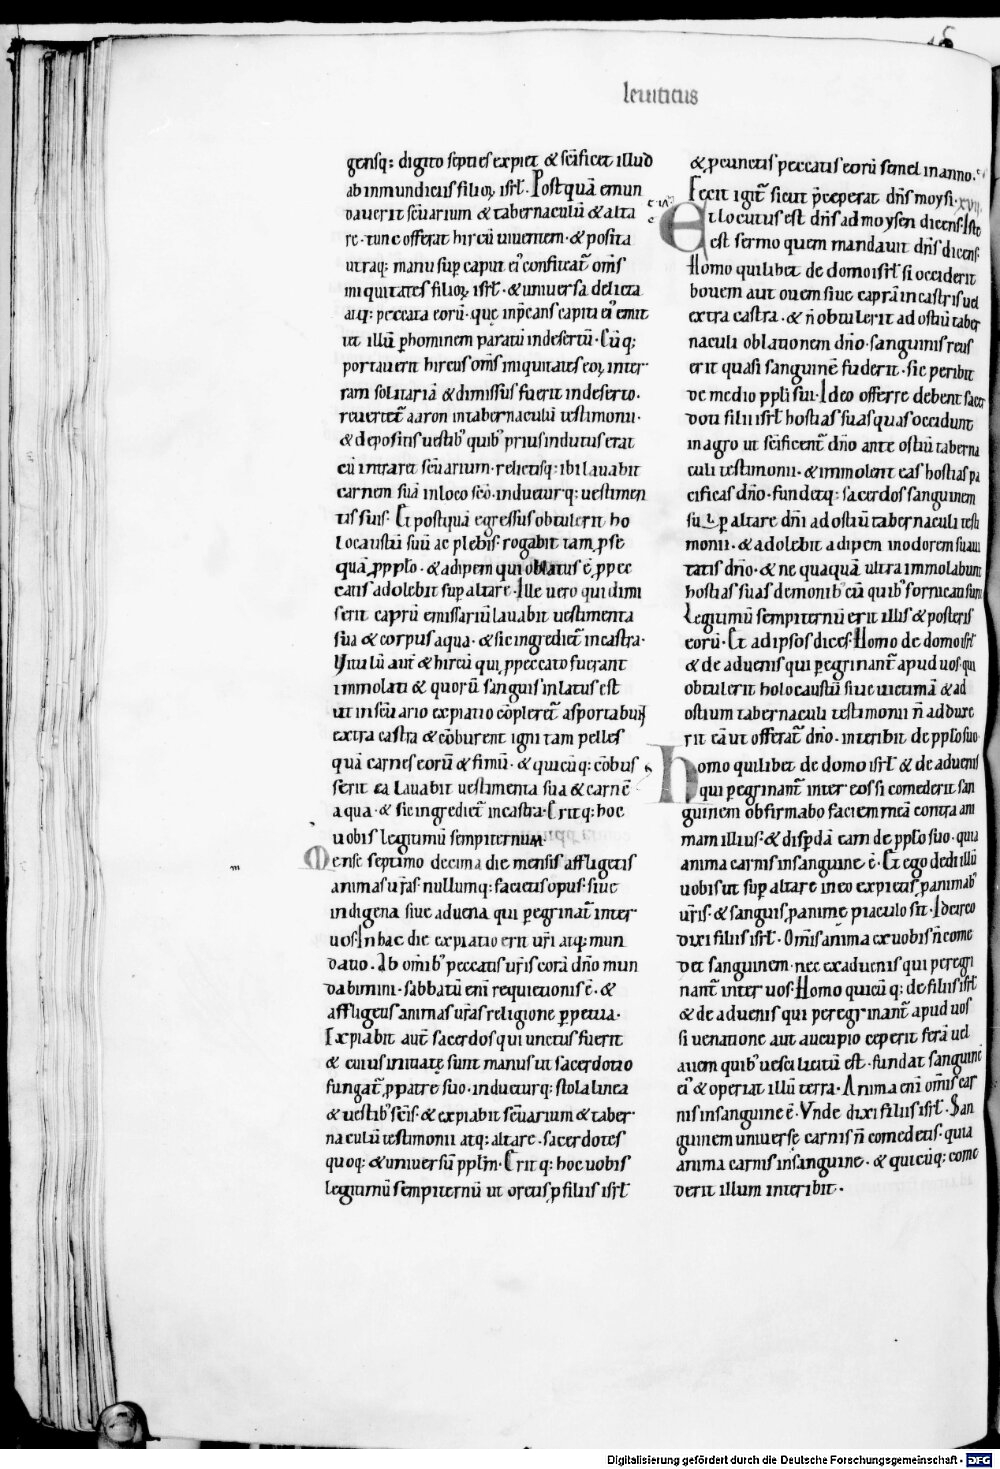 leuiticus
gensq; digito septies expiet & sc̄ificet illud
ab inmundiciis filioꝝ isrł. Postquā emun
dauerit sc̄uarium & tabernaculū & alta
re. tunc offerat hircū uiuentem. & posita
utraq; manu sup caput ei᾽ confiteat᷑ om̄s
iniquitates filioꝝ isrł. & uniuersa delicta
atq; peccata eorū. que inp̄cans capiti ei᾽ emit
tet illū ꝑ hominem paratū indesertū. Cūq;
portauerit hircus om̄s iniquitates eoꝝ inter
ram solitariā & dimissus fuerit indeserto.
reuertet᷑ aaron intabernaculū testimonii.
& depositis uestib᾽ quib᾽ prius indutus erat
cū intraret sc̄uarium. relictisq; ibi lauabit
carnem suā inloco sc̄o. induetur q; uestimen
tis suis. Et postquā egressus obtulerit ho
locaustū suū ac plebis. rogabit tam ꝓ se
quā ꝓ ppło. & adipem qui oblatus ē ꝓ pec
catis adolebit sup altare. Ille uero qui dimi
serit caprū emissariū lauabit uestimenta
sua & corpus aqua. & sic ingrediet᷑ incastra.
Vitulū aut̄ & hircū qui ꝓ peccato fuerant
immolati & quorū sanguis inlatus est
ut insc̄uario expiatio cōpleret᷑ asportabunt
extra castra & cōburent igni tam pelles
quā carnes eorū & fimū. & quicūq; cōbus
serit ea lauabit uestimenta sua & carnē
aqua. & sic ingrediet᷑ incastra. Eritq; hoc
uobis legitimū sempiternum.
Mense septimo decima die mensis affligetis
animas ur̄as. nullumq; facietis opus. siue
indigena siue aduena qui peregrinat᷑ inter
uos. In hac die expiatio erit ur̄i atq; mun
datio. Ab om̄ib᾽ peccatis ur̄is corā dn̄o mun
dabimini. sabbatū eni᷑ requietionis ē. &
affligetis animas ur̄as religione ꝑpetua.
Expiabit aut̄ sacerdos qui unctus fuerit
& cuius initiate sunt manus ut sacerdotio
fungat᷑ ꝓ patre suo. induetur q; stola linea
& uestib᾽ sc̄is. & expiabit sc̄uarium & taber
naculū testimonii atq; altare. sacerdotes
quoq; & uniuersū ppłm. Eritq; hoc uobis
legitimū sempiternū ut oretis ꝓ filiis isrł
& ꝓ cunctis peccatis eorū semel in anno.
Fecit igit᷑ sicut p̄ceperat dn̄s moysi. xvii
Et locutus est dn̄s ad moysen dicens. Iste
est sermo quem mandauit dn̄s dicens.
Homo quilibet de domo isrł si occiderit
bouem aut ouem siue caprā in castris uel
extra castra. & n̄ obtulerit ad ostiū taber
naculi oblationem dn̄o. sanguinis reus
erit quasi sanguinē fuderit. sic peribit
de medio ppłi sui. Ideo offerre debent sacer
doti filii isrł hostias suas quas occidunt
in agro ut sc̄ificent᷑ dn̄o ante ostiū taberna
culi testimonii. & immolent eas hostias pa
cificas dn̄o. fundetq; sacerdos sanguinem
sup altare dn̄i ad ostiū tabernaculi testi
monii. & adolebit adipem in odorem suaui
tatis dn̄o. & ne quaquā ultra immolabunt
hostias suas demonib᾽ cū quib᾽ fornicati sunt
Legitimū sempiternū erit illis & posteris
eorū. Et ad ipsos dices. Homo de domo isrł
& de aduenis qui peregrinant᷑ apud uos. qui
obtulerit holocaustū siue uictimā & ad
ostium tabernaculi testimonii n̄ adduxe
rit eā ut offerat᷑ dn̄o. interibit de ppło suo.
Homo quilibet de domo isrł & de aduenis
qui peregrinant᷑ inter eos si comederit san
guinem obfirmabo faciem meā contra ani
mam illius. & disp̄dā eam de ppło suo. quia
anima carnis in sanguine ē. & ego dedi illū
uobis ut sup altare in eo expietis ꝓ animab᾽
ur̄is. & sanguis ꝓ anime piaculo sit. Idcirco
dixi filiis isrł. Omīs anima ex uobis n̄ come
det sanguinem. nec ex aduenis qui peregri
nant᷑ inter uos. Homo quicūq; de filiis isrł
& de aduenis qui peregrinant᷑ apud uos
si uenatione aut aucupio ceperit ferā uel
auem quib᾽ uesci licitū est. fundat sanguinē
ei᾽ & operiat illū terra. Anima eni᷑ omīs car
nis in sanguine ē. Vnde dixi filiis isrł. San
guinem uniuerse carnis n̄ comedetis. quia
anima carnis in sanguine. & quicūq; come
derit illum interibit.
Digitalisierung gefördert durch die Deutsche Forschungsgemeinschaft - DFG